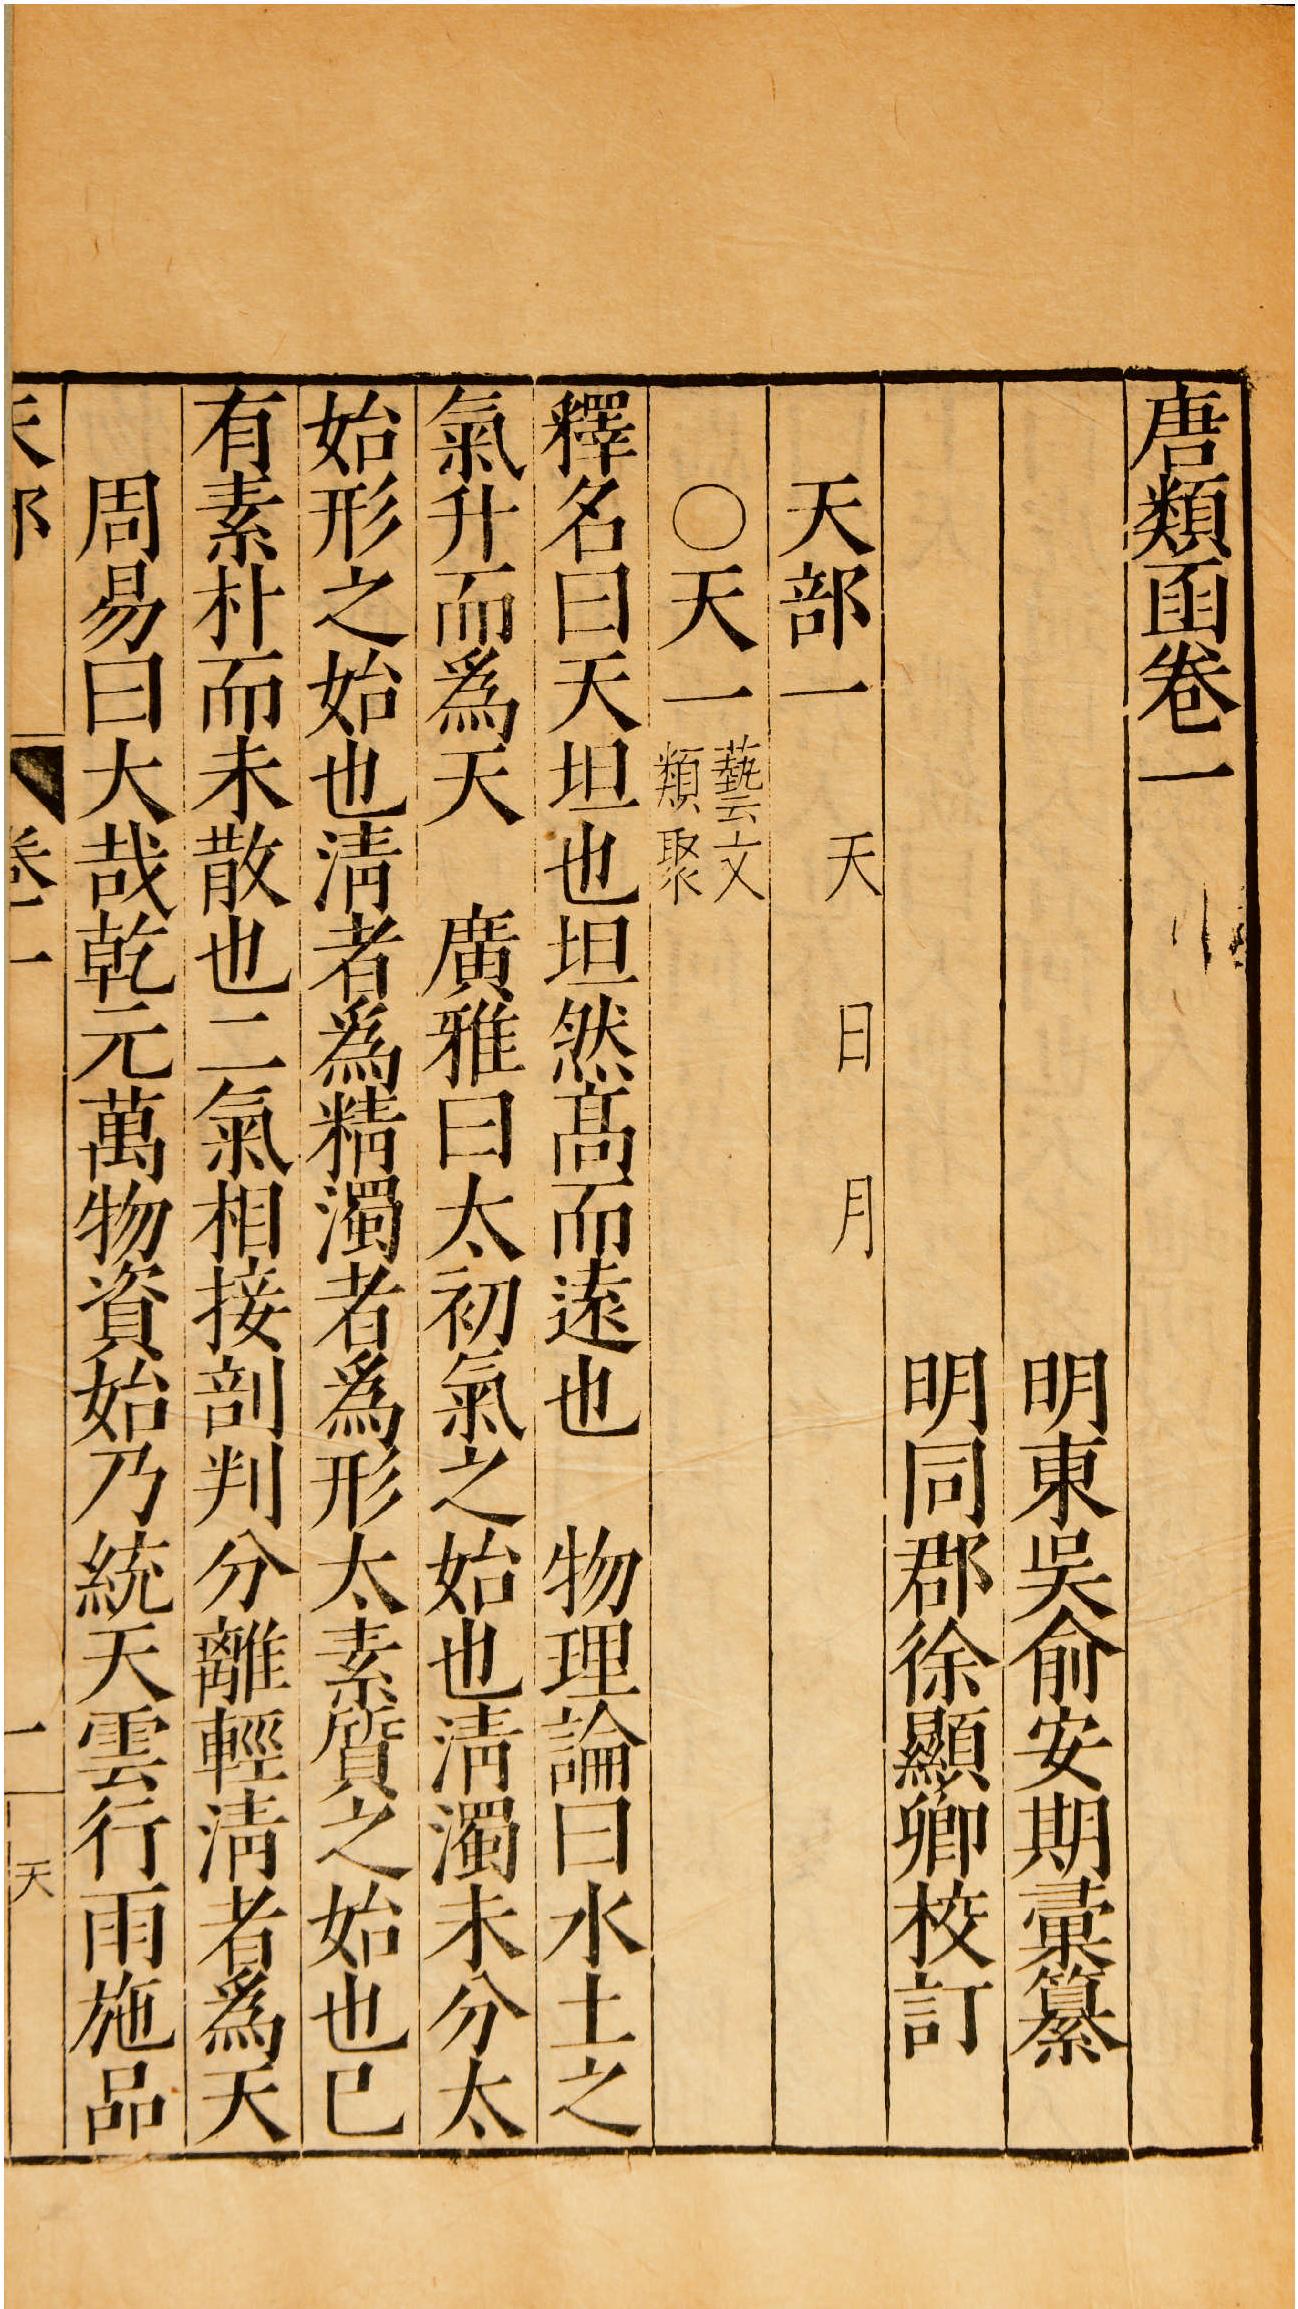 唐類函卷一
明東吳俞安期彚纂
明同郡徐顯卿校訂
天部一 天 日 月
○天一 藝文類聚
釋名曰天坦也坦然髙而遠也 物理論曰水土之
氣升而爲天 廣雅曰太初氣之始也淸濁未分太
始形之始也淸者爲精濁者爲形太素質之始也已
有素朴而未散也二氣相接剖判分離輕淸者爲天
周易曰大哉乾元萬物資始乃統天雲行雨施品
天部 卷一 一 天